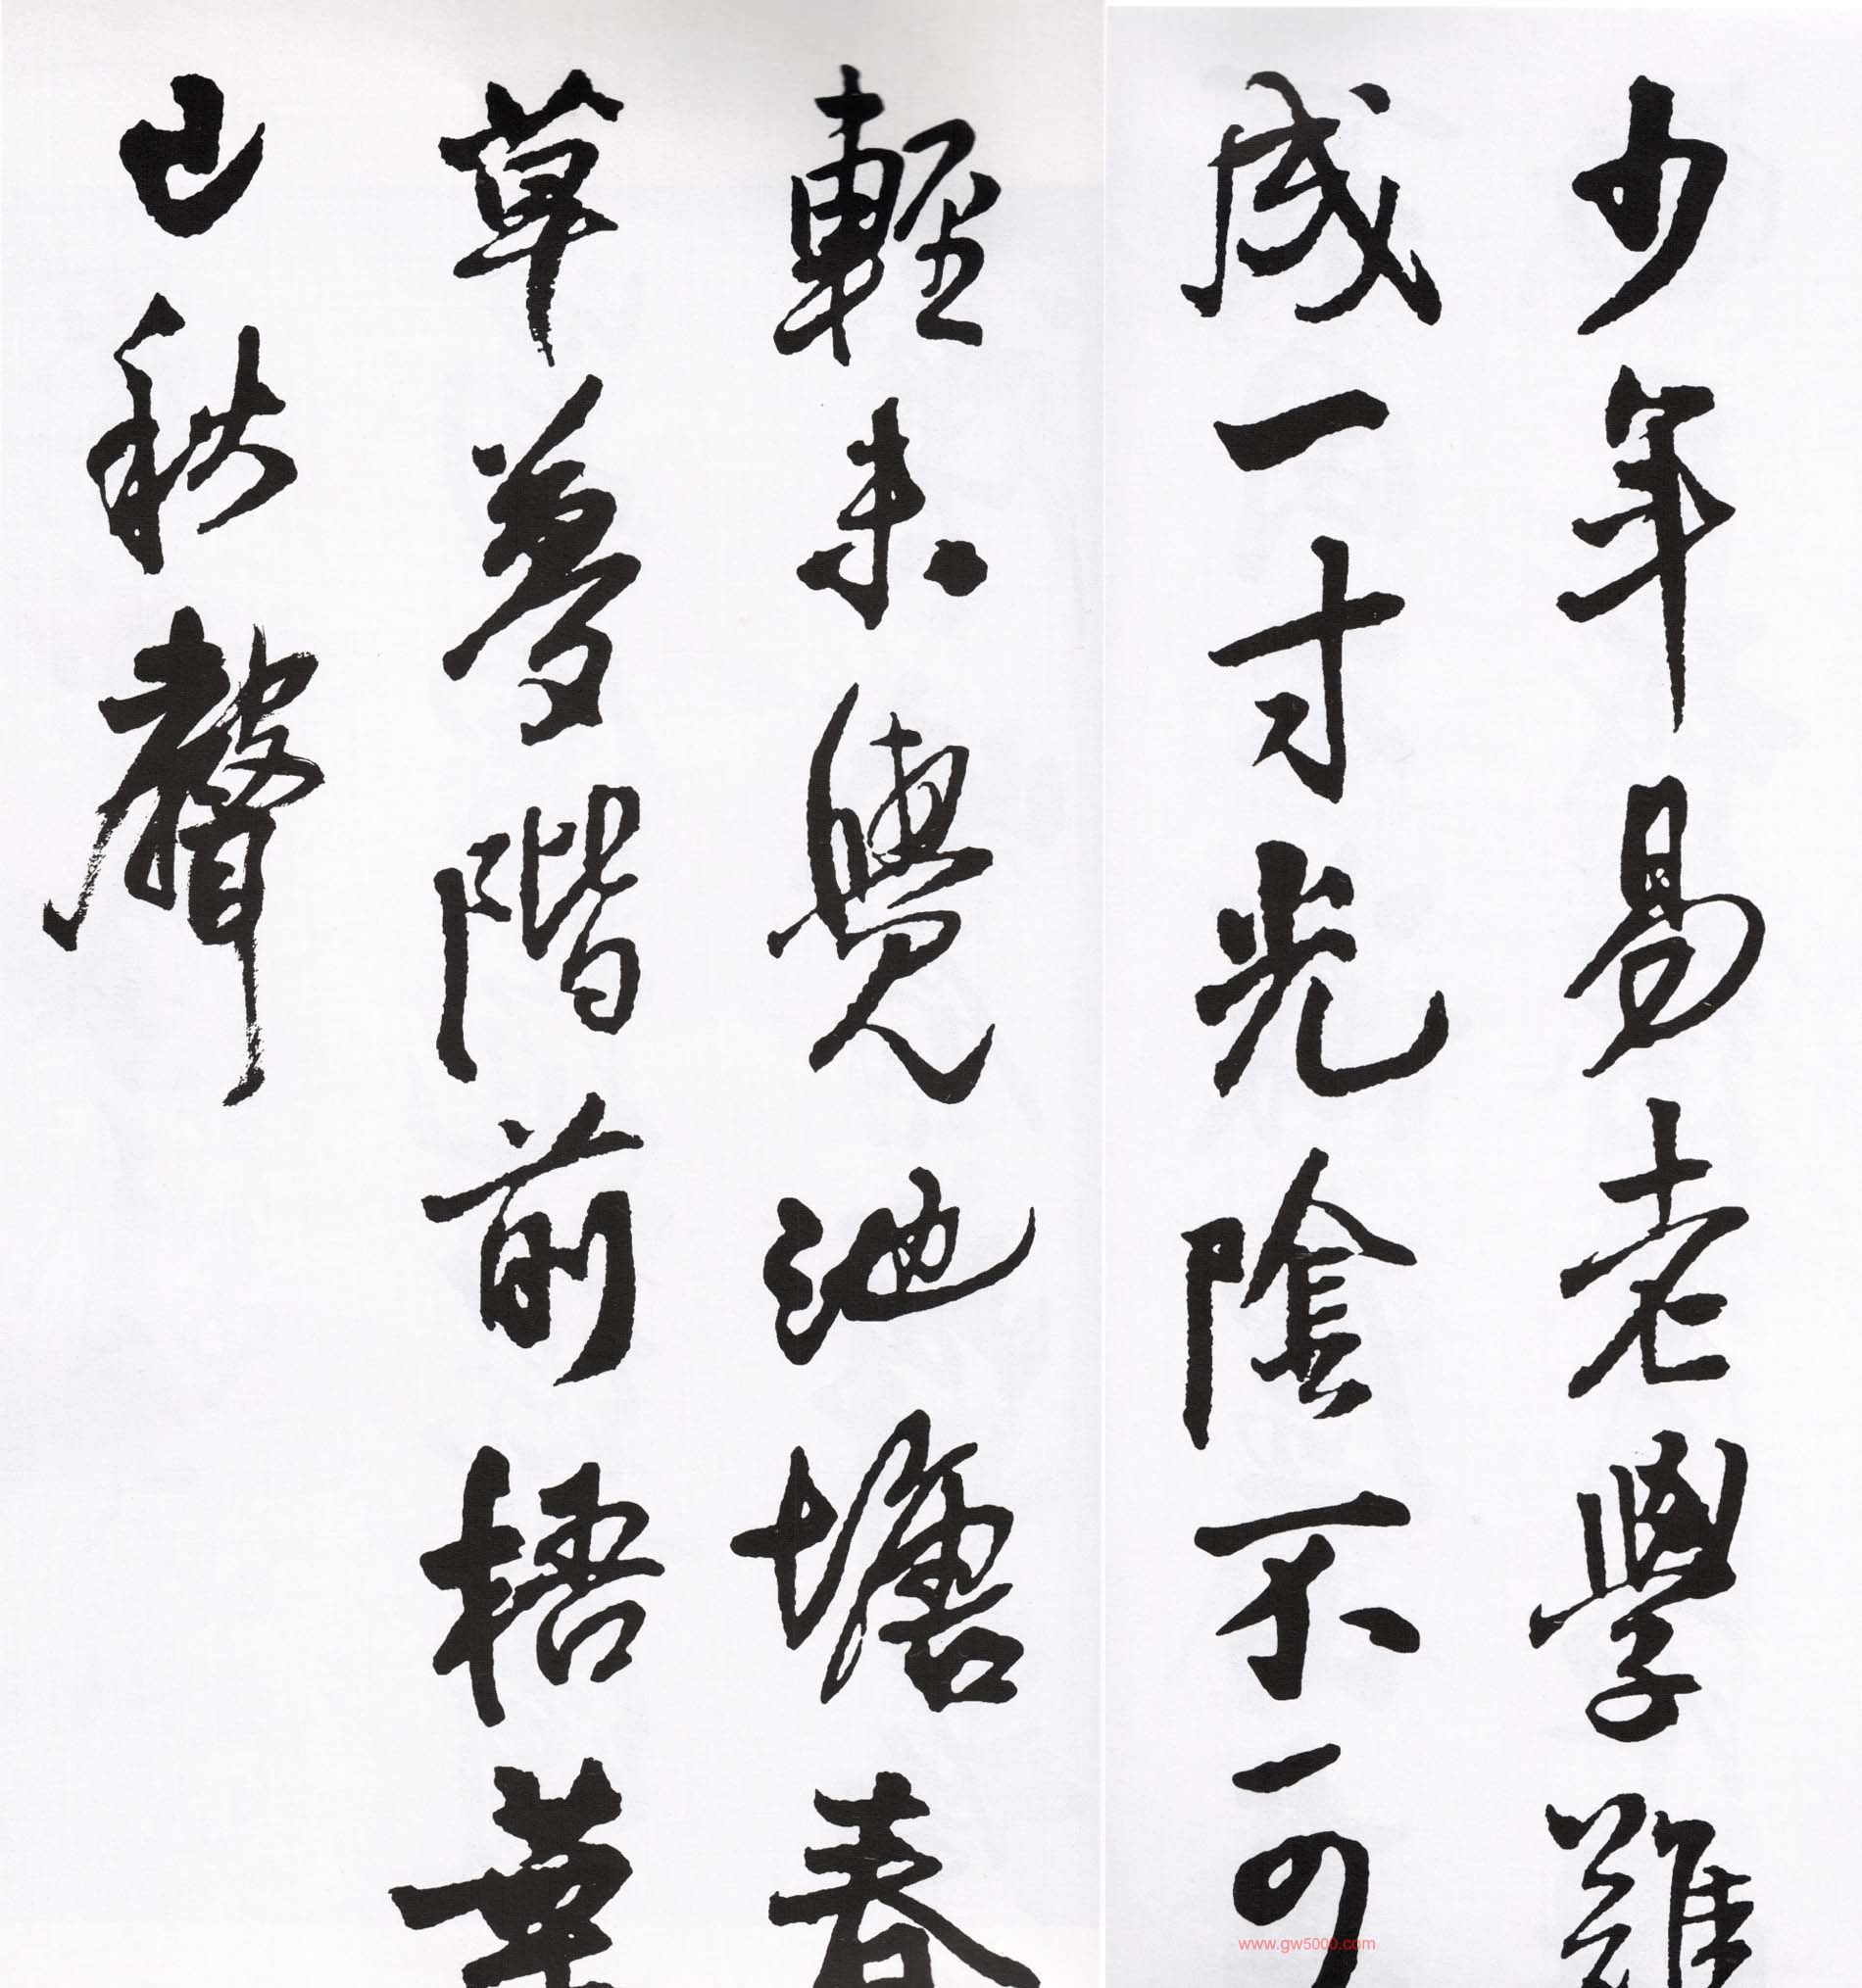 少年易老學難
成一寸光陰不可
輕未覺池塘春
草夢階前梧葉
已秋聲
www.gw5000.com